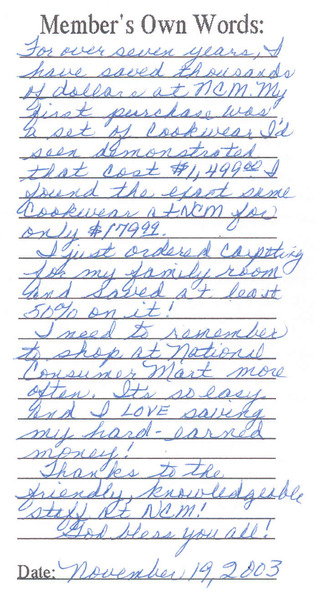 Member's Own Words:
For over seven years, I
have saved thousands
of dollars at NCM. My
first purchase was
a set of Cookwear I'd
seen demonstrated
that cost $1,499.00 I
found the exact same
Cookwear at NCM for
only $179.99.
I just ordered carpeting
for my family room
and saved at least
50% on it!
I need to remember
to shop at National
Consumer Mart more
often. It's so easy
and I LOVE saving
my hard-earned
money!
Thanks to the
friendly, knowledgeable
staff at NCM!
God bless you all!
Date: November 19, 2003